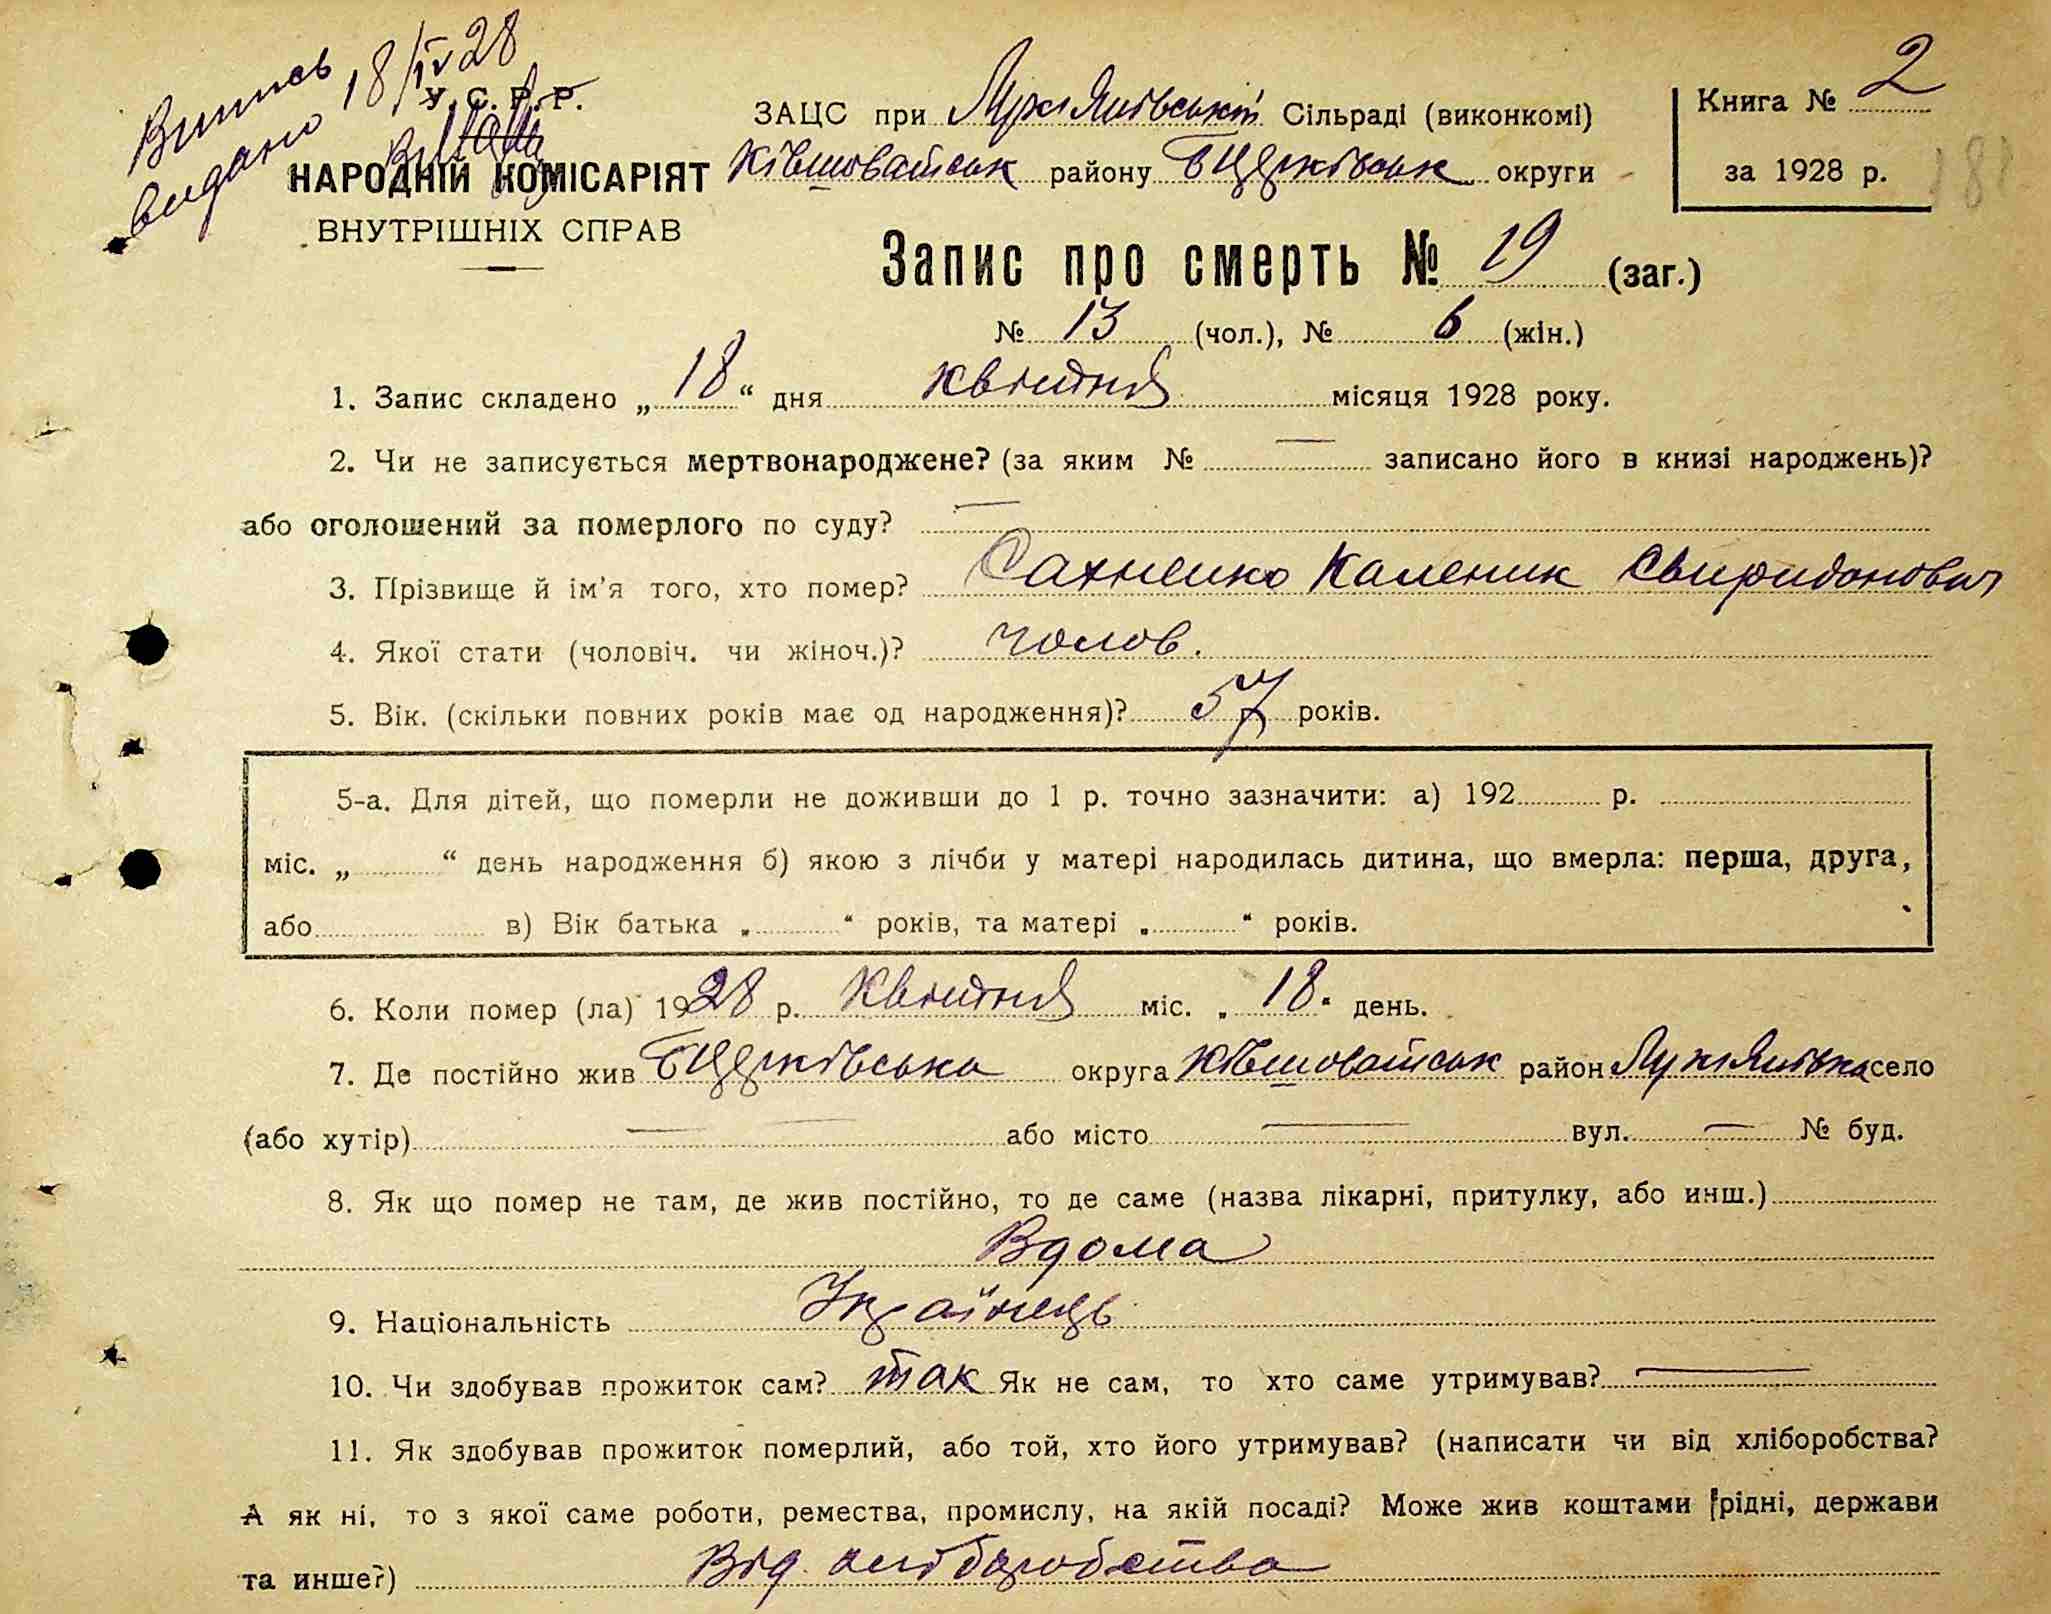 Витяг видано 18/IV 28
У. С. Р. Р.
НАРОДНІЙ КОМІСАРІЯТ
ВНУТРІШНІХ СПРАВ
ЗАЦС при Лук'янівській Сільраді (виконкомі)
Ківшовайськ району БЦерківськ округи
Книга № 2
за 1928 р.
Запис про смерть № 19 (заг.)
№ 13 (чол.), № 6 (жін.)
1. Запис складено „18“ дня квітня місяця 1928 року.
2. Чи не записується мертвонароджене? (за яким № — записано його в книзі народжень)?
або оголошений за померлого по суду? —
3. Прізвище й ім'я того, хто помер? Сахненко Каленик Свиридонович
4. Якої стати (чоловіч. чи жіноч.)? чолов.
5. Вік. (скільки повних років має од народження)? 57 років.
5-а. Для дітей, що померли не доживши до 1 р. точно зазначити: а) 192 р.
міс. „ “ день народження б) якою з лічби у матері народилась дитина, що вмерла: перша, друга,
або в) Вік батька „ “ років, та матері „ “ років.
6. Коли помер (ла) 1928 р. Квітня міс. „18“ день.
7. Де постійно жив БЦерківська округа Ківшовайськ район Лук'янівка село
(або хутір) — або місто — вул. — № буд.
8. Як що помер не там, де жив постійно, то де саме (назва лікарні, притулку, або инш.)
Вдома
9. Національність Українець
10. Чи здобував прожиток сам? так Як не сам, то хто саме утримував? —
11. Як здобував прожиток померлий, або той, хто його утримував? (написати чи від хліборобства?
А як ні, то з якої саме роботи, ремества, промислу, на якій посаді? Може жив коштами рідні, держави
та инше?) Від хліборобства